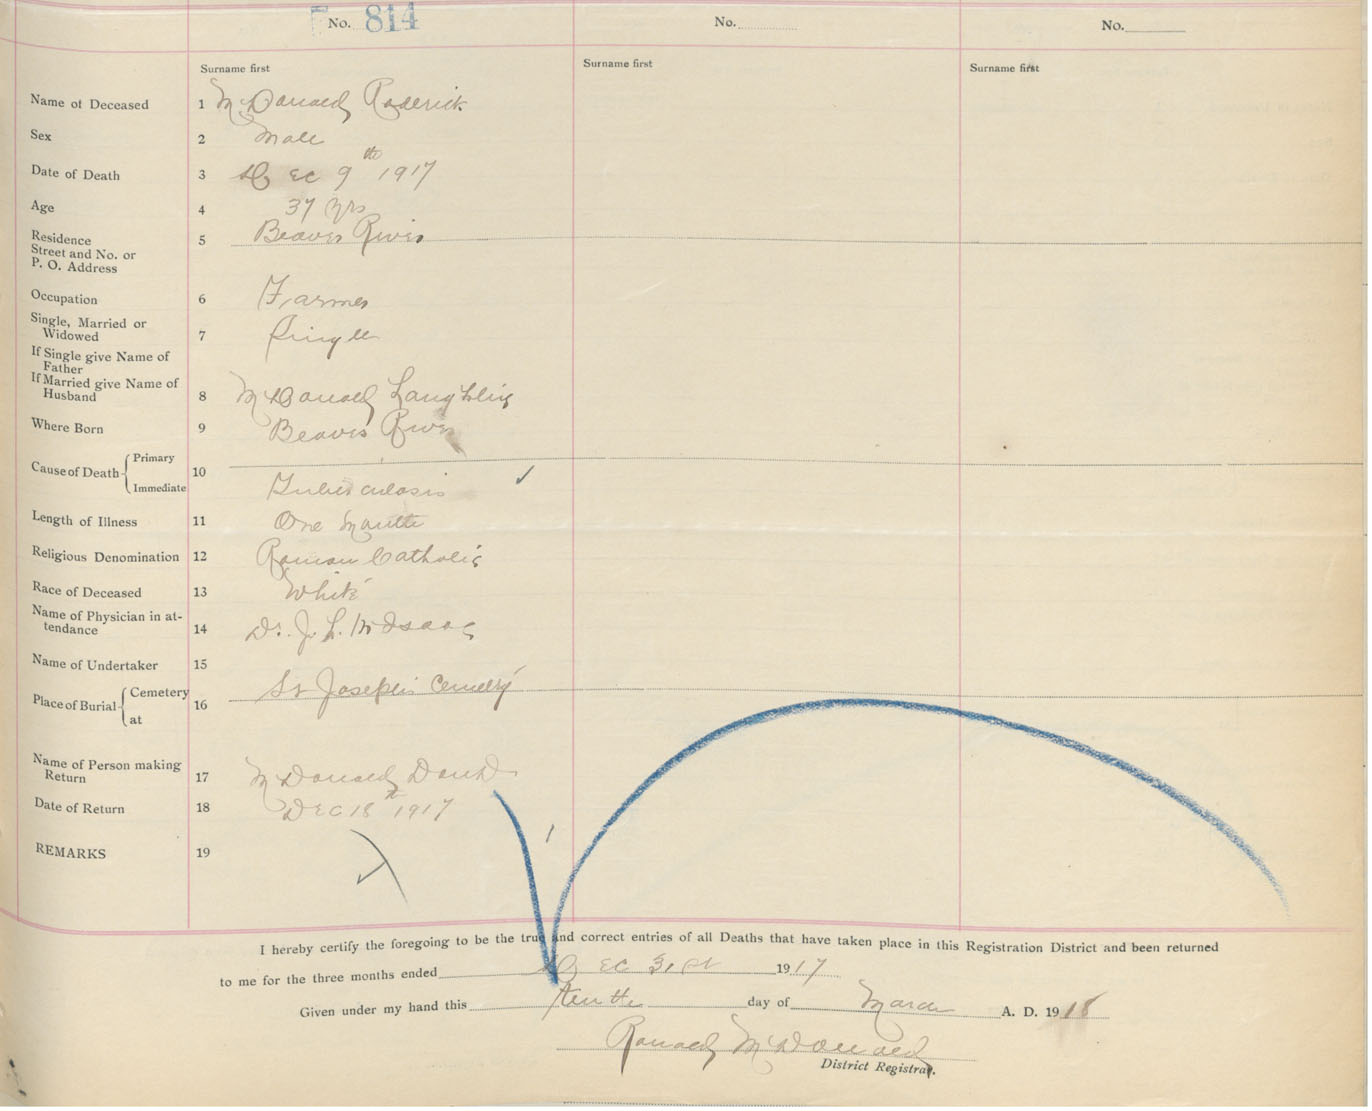 No. 814 No. No.
Surname first Surname first Surname first
Name of Deceased 1 McDonald Roderick
Sex 2 Male
Date of Death 3 Dec 9th 1917
Age 4 37 yrs
Residence
Street and No. or
P. O. Address 5 Beaver River
Occupation 6 Farmer
Single, Married or
Widowed 7 Single
If Single give Name of
Father
If Married give Name of
Husband 8 McDonald Laughlin
Where Born 9 Beaver River
Cause of Death { Primary
Immediate 10 Tuberculosis ✓
Length of Illness 11 One Month
Religious Denomination 12 Roman Catholic
Race of Deceased 13 White
Name of Physician in at-
tendance 14 Dr. J. L. McIsaac
Name of Undertaker 15
Place of Burial { Cemetery
at 16 St Joseph's Cemetry
Name of Person making
Return 17 McDonald
Date of Return 18 Dec 18th 1917
REMARKS 19
I hereby certify the foregoing to be the true and correct entries of all Deaths that have taken place in this Registration District and been returned
to me for the three months ended Dec 31st 1917
Given under my hand this tenth day of March A. D. 1918
Ronald McDonald
District Registrar.